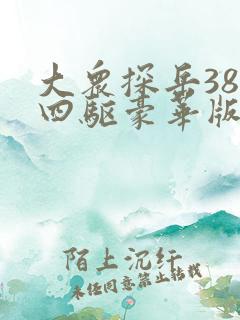 大眾探岳38
四驅豪華版
陌上沉纤
未经同意禁止转载